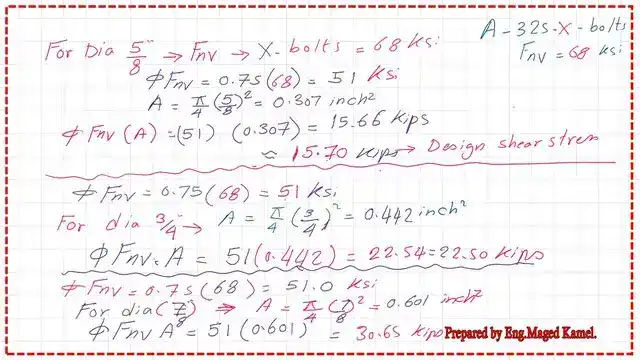 A-325-X-bolts
Fnv = 68 ksi
For Dia 5/8" → Fnv → X-bolts = 68 ksi
φFnv = 0.75 (68) = 51 ksi
A = π/4 (5/8)² = 0.307 inch²
φFnv (A) = (51) (0.307) = 15.66 kips
≈ 15.70 kips → Design shear stress
φFnv = 0.75 (68) = 51 ksi
For dia 3/4" → A = π/4 (3/4)² = 0.442 inch²
φFnv·A = 51(0.442) = 22.54 = 22.50 kips
φFnv = 0.75 (68) = 51.0 ksi
For dia (7/8") ⇒ A = π/4 (7/8)² = 0.601 inch²
φFnv A = 51 (0.601) = 30.65 kips
Prepared by Eng.Maged Kamel.